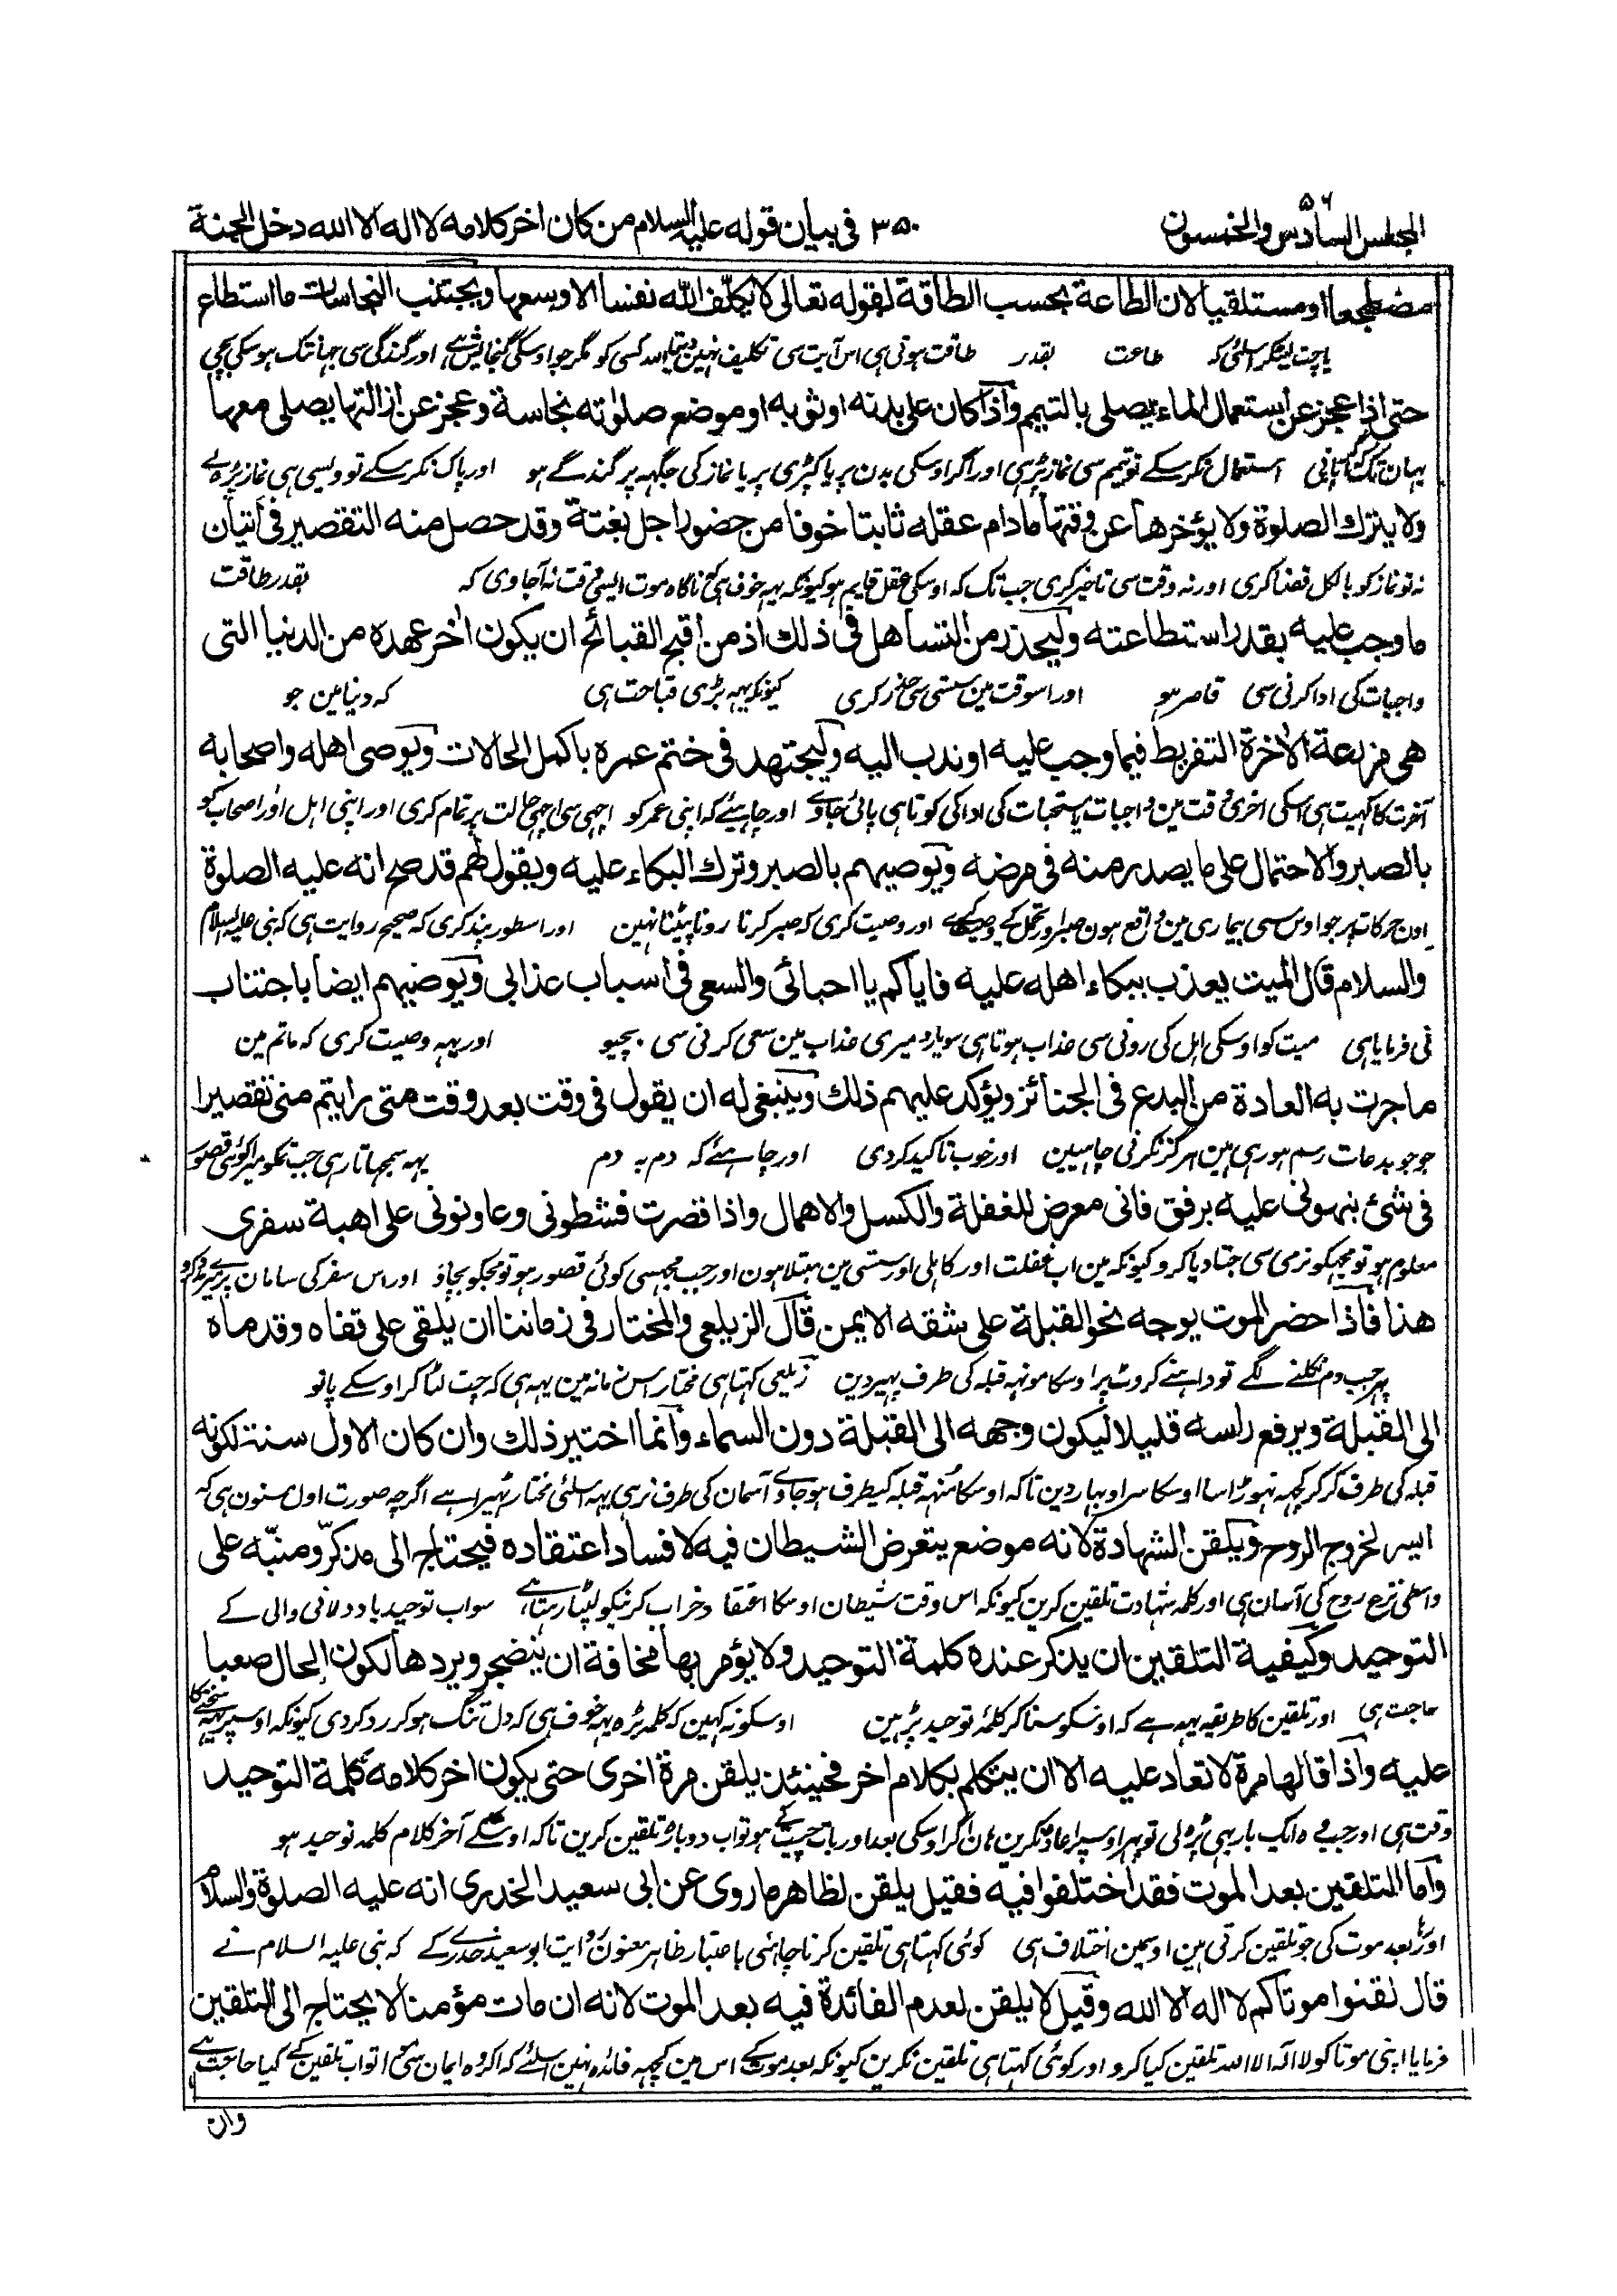 المجلس السادس والخمسون ٥٦ ٣٥٠ فى بيان قوله عليه السلام من كان اخر كلامه لا اله الا الله دخل الجنة
مضطجعا او مستلقيا لان الطاعة بحسب الطاقة لقوله تعالى لا يكلف الله نفسا الا وسعها ويجتنب النجاسات ما استطاع
یا چت لیٹکر اسلئی کہ طاعت بقدر طاقت ہوتی ہی اس آیت سی تکلیف نہین دیتا اللہ کسی کو مگر جو اوسکی گنجایش ہے اور گندگی سی جہانتک ہوسکی بچی
حتى اذا عجز عن استعمال الماء يصلى بالتيمم واذا كان على بدنه او ثوبه او موضع صلوته نجاسة وعجز عن ازالتها يصلى معها
یہان تک کہ پانی استعمال نکر سکے تو تیمم سی نماز پڑہی اور اگر اوسکی بدن پر یا کپڑی پر یا نماز کی جگہہ پر گندگے ہو اور پاک نکر سکے تو ویسی ہی نماز پڑہ لے
ولا يترك الصلوة ولا يؤخرها عن وقتها ما دام عقله ثابتا خوفا من حضور اجل بغتة وقد حصل منه التقصير فى اتيان
نہ تو نماز کو بالکل قضا کری اور نہ وقت سی تاخیر کری جب تک کہ اوسکی عقل قایم ہو کیونکہ یہہ خوف ہی کہ ناگاہ موت ایسی وقت نہ آجاوی کہ بقدر طاقت
ما وجب عليه بقدر استطاعته وليحذر من التساهل فى ذلك اذ من اقبح القبائح ان يكون اخر عهده من الدنيا التى
واجبات کی ادا کرنی سی قاصر ہو اور اسوقت مین سستی سی حذر کری کیونکہ یہہ بڑی قباحت ہی کہ دنیا مین جو
هى مزرعة الاخرة التفريط فيما وجب عليه او ندب اليه وليجتهد فى ختم عمره باكمل الحالات ويوصى اهله واصحابه
آخرت کا کہیت ہی اسکی اخری وقت مین واجبات یا مستحبات کی ادا کی کوتاہی پائی جاوے اور چاہیئے کہ اپنی عمر کو اچہی سی اچہی حالت پر تمام کری اور اپنی اہل اور اصحاب کو
بالصبر والاحتمال على ما يصدر منه فى مرضه ويوصيهم بالصبر وترك البكاء عليه ويقول لهم قد صح انه عليه الصلوة
اون حرکات پر جو اوس سی بیماری مین واقع ہون صبر اور تحمل کے اور وصیت کری کہ صبر کرنا رونا پیٹنا نہین اور اسطور پند کری کہ صحیح روایت ہی کہ نبی علیہ السلام
والسلام قال الميت يعذب ببكاء اهله عليه فاياكم يا احبائى والسعى فى اسباب عذابى ويوصيهم ايضا باجتناب
نی فرمایا ہی میت کو اوسکی اہل کی رونی سی عذاب ہوتا ہی سو یارو میری عذاب مین سعی کرنی سی بچیو اور یہہ وصیت کری کہ ماتم مین
ما جرت به العادة من البدع فى الجنائز ويؤكد عليهم ذلك وينبغى له ان يقول فى وقت بعد وقت متى رايتم منى تقصيرا
جو جو بدعات رسم ہو رہی ہین ہرگز نکرنی چاہیین اور خوب تاکید کردی اور چاہئے کہ دم بہ دم یہہ سمجہاتا رہی جب تمکو میرا کوئی قصور
فى شئ نبهونى عليه برفق فانى معرض للغفلة والكسل والاهمال واذا قصرت فنشطونى وعاونونى على اهبة سفرى
معلوم ہو تو مجہکو نرمی سی جتا دیا کرو کیونکہ مین اب غفلت اور کاہلی اور سستی مین مبتلا ہون اور جب مجہسی کوئی قصور ہو تو مجکو بچاؤ اور اس سفر کی سامان پر
هذا فاذا حضر الموت يوجه نحو القبلة على شقه الايمن قال الزيلعى والمختار فى زماننا ان يلقى على قفاه وقدماه
پہر جب دم نکلنے لگے تو داہنے کروٹ پر اوسکا مونہہ قبلہ کی طرف پہیر دین زیلعی کہتا ہی مختار اس زمانہ مین یہہ ہی کہ چت لٹا کر اوسکے پانو
الى القبلة ويرفع راسه قليلا ليكون وجهه الى القبلة دون السماء وانما اختير ذلك وان كان الاول سنة لكونه
قبلہ کی طرف کر کر کچہہ تہوڑا سا اوسکا سر اوبہار دین تاکہ اوسکا منہہ قبلہ کیطرف ہو جاوے آسمان کی طرف نرہی یہہ اسلئی مختار ٹہیرا ہے اگرچہ صورت اول مسنون ہی کہ
ايسر لخروج الروح ويلقن الشهادة لانه موضع يتعرض الشيطان فيه لافساد اعتقاده فيحتاج الى مذكر ومنبه على
واسطی نزع روح کی آسان ہی اور کلمہ شہادت تلقین کرین کیونکہ اس وقت شیطان اوسکا اعتقاد خراب کرنیکو لپٹا رہتا ہے سو اب توحید یاد دلانی والی کے
التوحيد وكيفية التلقين ان يذكر عنده كلمة التوحيد ولا يؤمر بها مخافة ان يتضجر ويردها لكون الحال صعبا
حاجت ہی اور تلقین کا طریقہ یہہ ہے کہ اوسکو سنا کر کلمہ توحید پڑہین اوسکو نہ کہین کہ کلمہ پڑہ یہہ خوف ہی کہ دل تنگ ہو کر رد کردی کیونکہ اوسپر یہہ سختی کا
عليه واذا قالها مرة لا تعاد عليه الا ان يتكلم بكلام اخر فحينئذ يلقن مرة اخرى حتى يكون اخر كلامه كلمة التوحيد
وقت ہی اور جب وہ ایک بار بہی پڑہ لی تو پہر اوسپر اعادہ نکرین ہان اگر اوسکی بعد اور بات چیت کے ہو تو اب دوبارہ تلقین کرین تاکہ اوسکے آخر کلام کلمہ توحید ہو
واما التلقين بعد الموت فقد اختلفوا فيه فقيل يلقن لظاهر ما روى عن ابى سعيد الخدرى انه عليه الصلوة والسلام
اور بعد موت کی جو تلقین کرتی ہین اوسمین اختلاف ہی کوئی کہتا ہی تلقین کرنا چاہئی باعتبار ظاہر معنون روایت ابو سعید خدری کے کہ نبی علیہ السلام نے
قال لقنوا موتاكم لا اله الا الله وقيل لا يلقن لعدم الفائدة فيه بعد الموت لانه ان مات مؤمنا لا يحتاج الى التلقين
فرمایا اپنی موتا کو لا الہ الا اللہ تلقین کیا کرو اور کوئی کہتا ہی تلقین نکرین کیونکہ بعد موت کے اس مین کچہہ فائدہ نہین اسلئے کہ اگر وہ ایمان سی مرا تو اب تلقین کے کیا حاجت ہے
وان